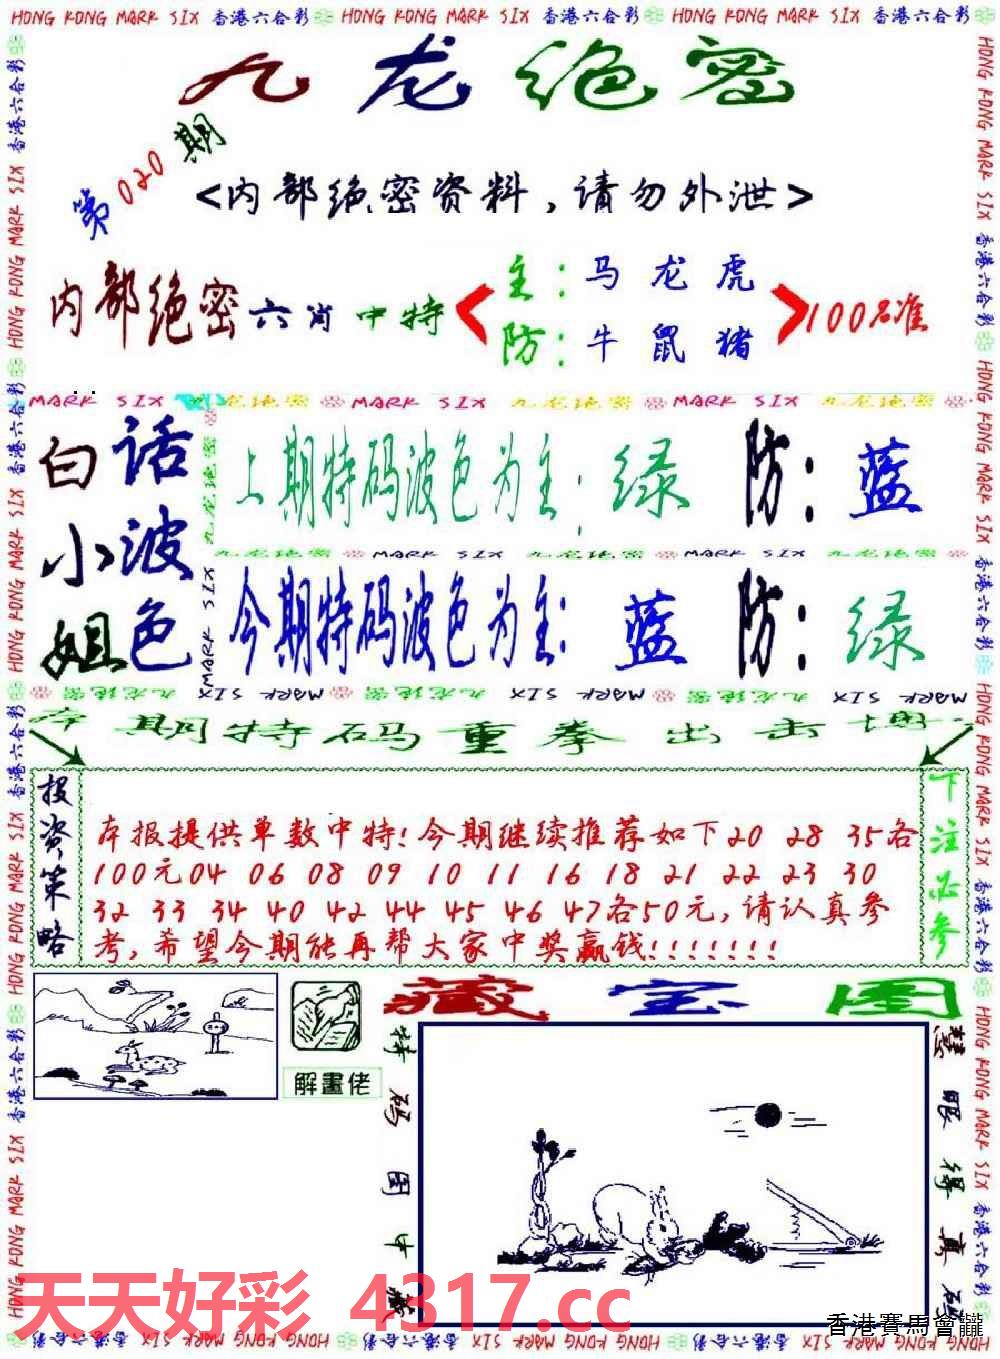 HONG KONG MARK SIX 香港六合彩 HONG KONG MARK SIX 香港六合彩 HONG KONG MARK SIX 香港六合彩
九龙绝密
第020期
<内部绝密资料,请勿外泄>
内部绝密六肖中特
主:马 龙 虎
防:牛 鼠 猪
100%准
MARK SIX 九龙绝密 MARK SIX 九龙绝密 MARK SIX 九龙绝密
白小姐
话波色
上期特码波色为主:绿 防:蓝
九龙绝密 MARK SIX 九龙绝密 MARK SIX 九龙绝密
今期特码波色为主:蓝 防:绿
MARK SIX 九龙绝密 MARK SIX 九龙绝密 MARK SIX 九龙绝密
本期特码重拳出击
投资策略
本报提供单数中特!今期继续推荐如下20 28 35各
100元04 06 08 09 10 11 16 18 21 22 23 30
32 33 34 40 42 44 45 46 47各50元,请认真参
考,希望今期能再帮大家中奖赢钱!!!!!!!
下注必参
藏宝图
解畫佬
特码图中藏
慧眼得真码
天天好彩 4317.cc
香港賽馬會
HONG KONG MARK SIX 香港六合彩 HONG KONG MARK SIX 香港六合彩 HONG KONG MARK SIX